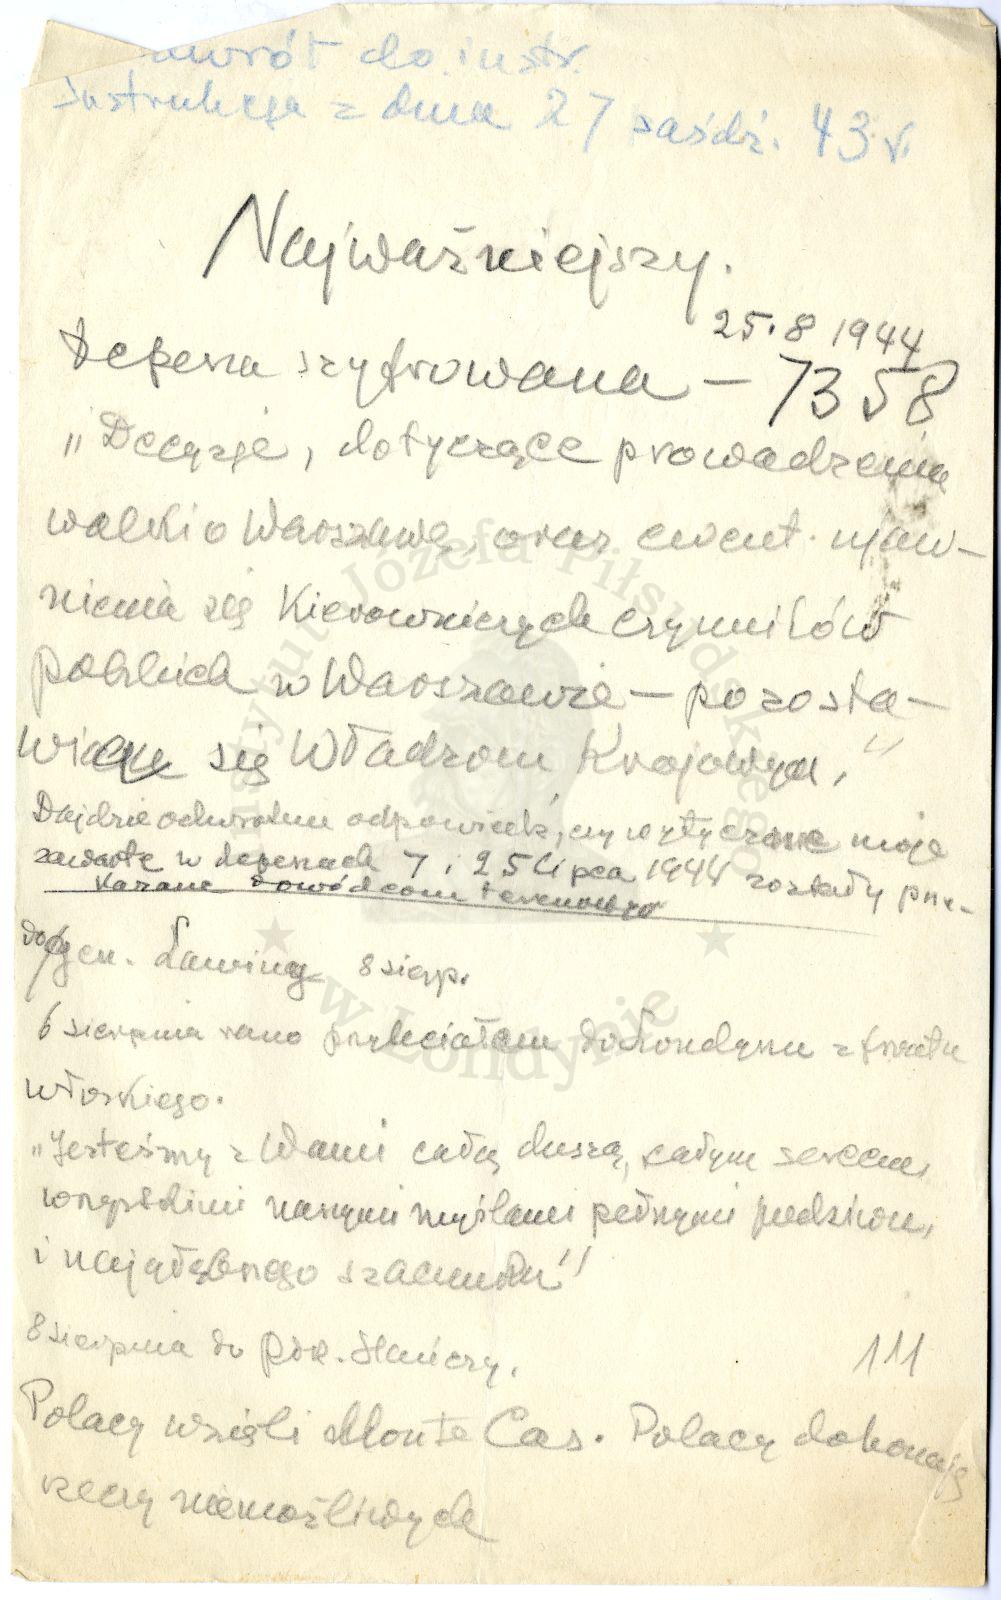 nawrót do instr.
Instrukcja z dnia 27 paźdź. 43 r.
Najważniejszy.
25.8 1944
Depesza szyfrowana – 7358
„Decyzje, dotyczące prowadzenia
walki o Warszawę, oraz ewent. ujaw-
nienia się Kierowniczych czynników
polskich w Warszawie – pozosta-
wiam się Władzom Krajowym."
Dajcie odwrotnie odpowiedź, czy wytyczne moje
zawarte w depeszach 7 i 25 lipca 1944 zostały prze-
kazane dowódcom terenowym
do gen. Lawiny 8 sierp.
6 sierpnia rano przyleciałem do Londynu z frontu
włoskiego.
„Jesteśmy z Wami całą duszą, całym sercem,
wszystkimi naszymi myślami pełnymi podziwu,
i najgłębszego szacunku"
8 sierpnia do płk. Hańczy. 111
Polacy wzięli Monte Cas. Polacy dokonają
rzeczy niemożliwych
Instytut Józefa Piłsudskiego
★ w Londynie ★